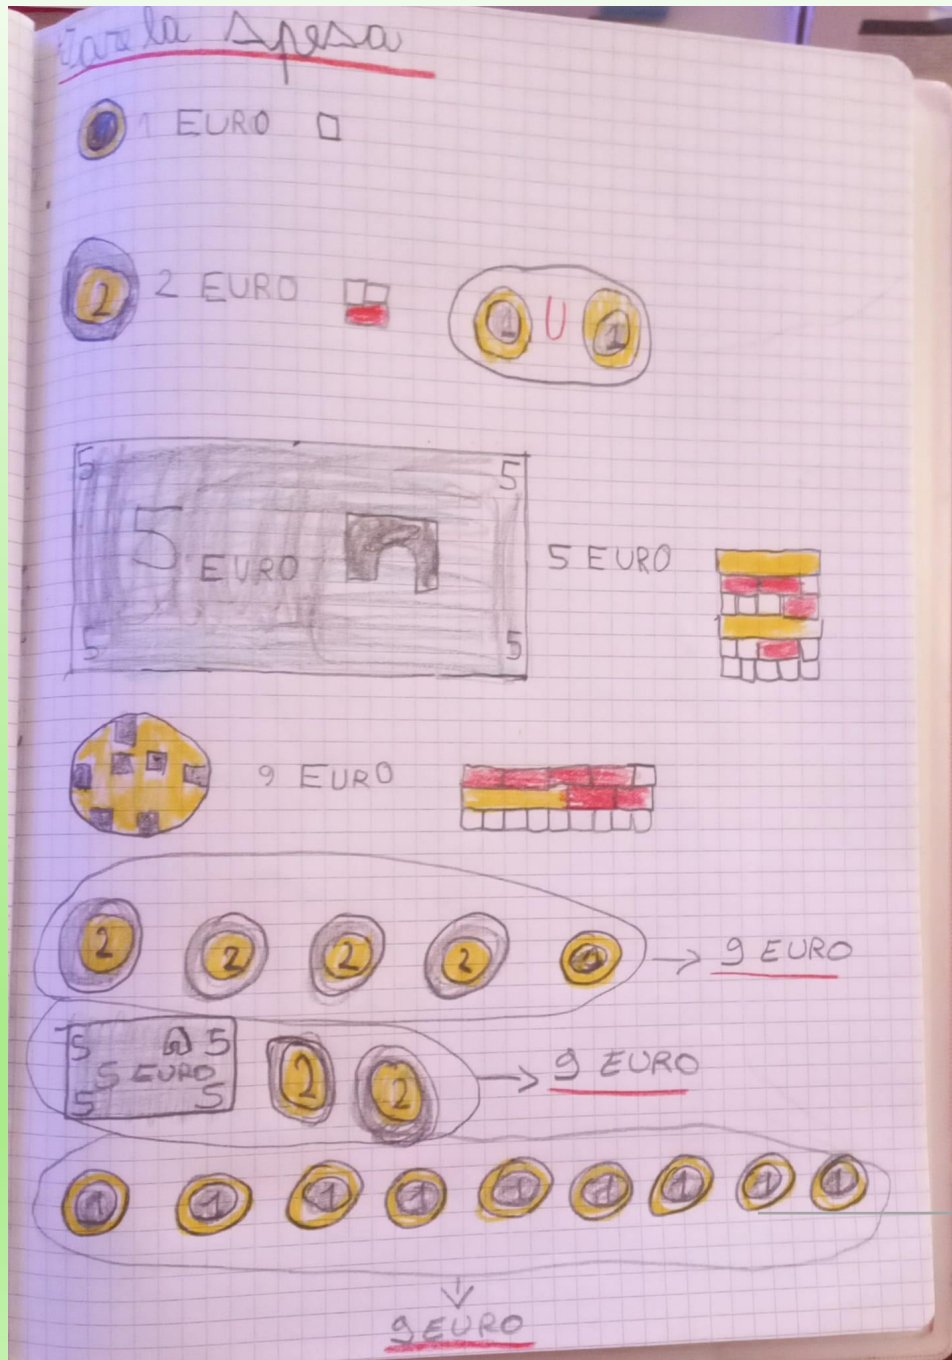 Fare la spesa
1 EURO
2 2 EURO 1 U 1
5 5
5 EURO
5 5
5 EURO
9 EURO
2 2 2 2 1 → 9 EURO
5 5
5 EURO
5 5
2 2 → 9 EURO
1 1 1 1 1 1 1 1 1
9 EURO